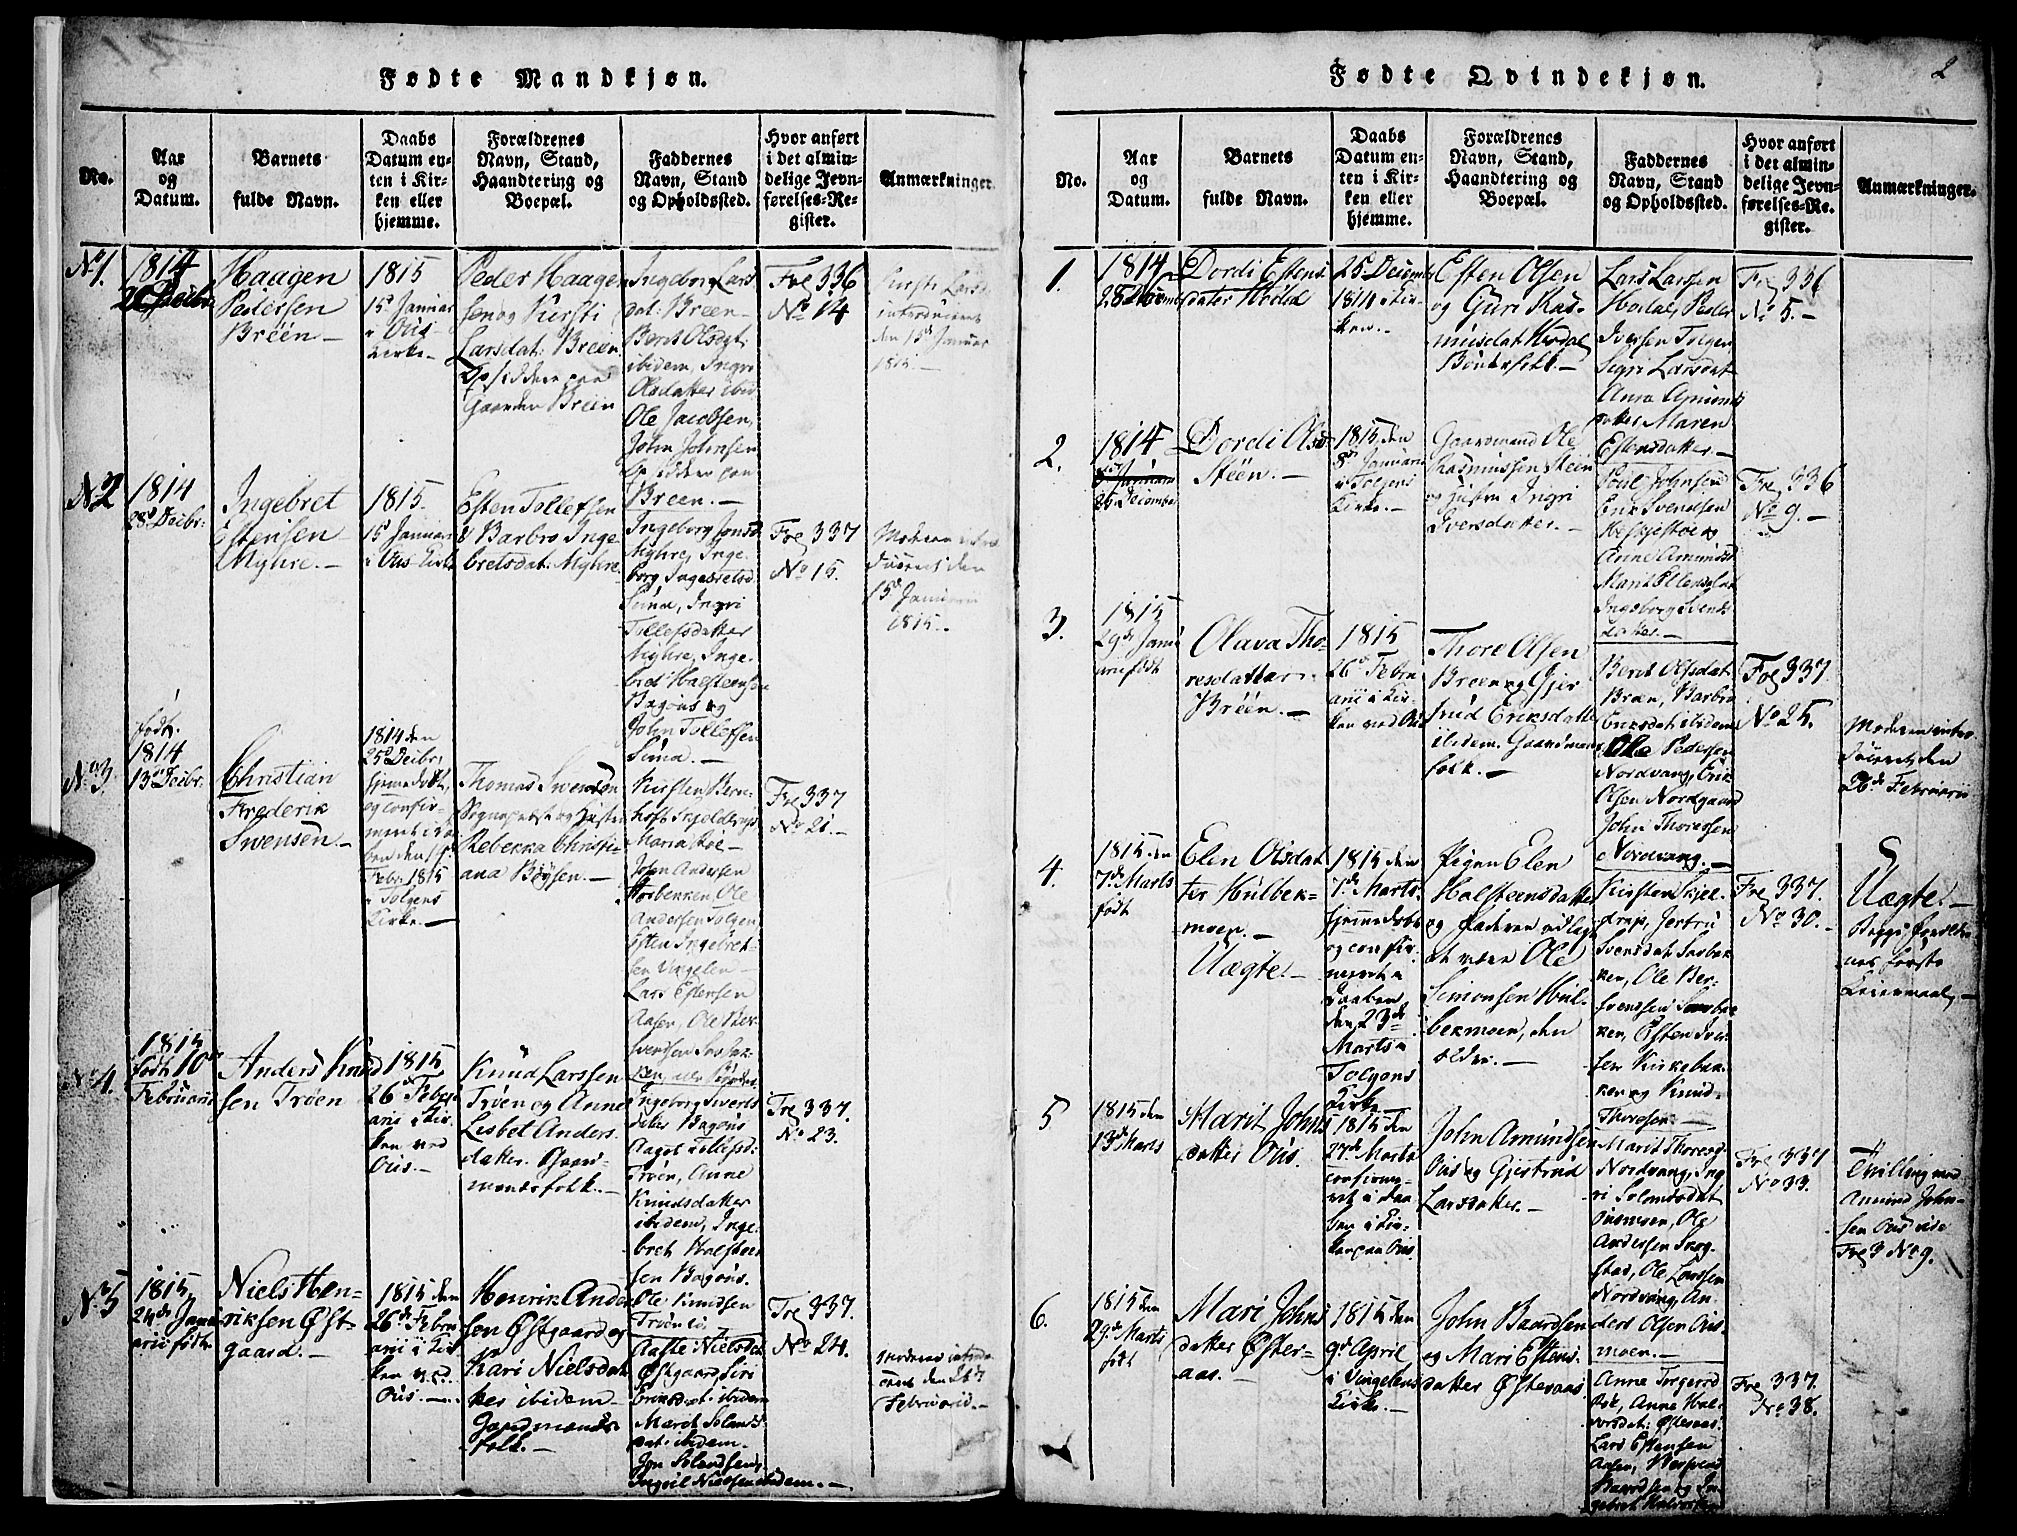 Fødte Mandkjøn.
No.
Aar
og
Datum.
Barnets
fulde Navn.
Daabs
Datum en-
ten i Kir-
ken eller
hjemme.
Forældrenes
Navn, Stand,
Haandtering og
Boepæl.
Faddernes
Navn, Stand
og Opholdssted.
Hvor anført
i det almin-
delige Jevn-
førelses-Re-
gister.
Anmærkninger.
No 1.
1814
Haagen
Pedersen
Brëen
1815
15d Januar
i Ous
Kirke
Peder Haagen
sen og Kirsti
Larsdat: Brëen
Opsiddere paa
Gaarden Brëen
Ingeborg Lars
dat: Brëen
Berit Olsdat
ibidem, Ingri
Olsdatter ibid
Ole Jacobsen,
John Johnsen
Opsiddere paa
Brëen.
Fol 336
No 14
Kirsti Larsd
introduceret
den 15d Januar
1815.
No 2
1814
28d Decbr:
Ingebret
Estensen
Myhre.
1815.
15d Januar
i Ous Kirke
Esten Tollefsen
& Barbro Inge
bretsdat: Myhre.
Ingeborg Jonsd
Myhre, Inge-
borg Ingebretsd.
Sünd, Ingri
Tollefsdatter
Myhre, Inge-
bret Halsteensen
Bagøus og
John Tollefsen
Sünd.
Fol 337
No 15.
Moderen intro
duceret den
15d Januar
1815.
No 3.
født.
1814
13de Decbr.
Christian
Frederik
Swensen.
1814 den
25d Decbr.
hjemmedøbt,
og confir-
meret i Kir
ken den
Febr. 1815
i Tolgens
Kirke.
Thomas Swensen
Sognepræst og Hustru
Rebekka Christi-
ana Böysen.
Kirsten Bern
hoft Skjelderup
Maria Röe
John Andersen
Ole
Andersen Tolgen
Esten Ingebret-
sen Vingelen
Lars Estensen
Aasen, Ole Ber-
svendsen
Fol 337
No 21.
No 4.
1815
født 10de
Februarii
Anders Knud
sen Trøen
1815
26d Febru
arii i Kir-
ken ved
Ous.
Knud Larssen
Trøen og Anne
Lisbet Anders
datter. Gaard-
mandsfolk.
Ingeborg Siverts
datter Bagøus
Aagot Tollefsd:
Trøen, Anne
Knudsdatter
ibidem, Inge-
bret Halsteen
sen Bagøus.
Ole Knudsen
Trøen
Fol 337.
No 23.
No 5
1815
24de Janu
arii født.
Niels Hen-
riksen Øst-
gaard.
1815 den
26de Febru
arii i Kir-
ken ved
Ous.
Henrik Ander
sen Østgaard og
Kari Nielsdat
ter ibidem
Gaardmands-
folk.
Aaste Nielsdat
Østgaard, Siri
Eriksdat: ibidem
Marit Solmds
dat: ibidem.
Jon Solmdsen,
Ingvil Nielsen ibidem.
Fol 337.
No 24.
Moderen intro
duceret den 26d
Februarii.
2
Fødte Qvindekjøn.
No.
Aar
og
Datum.
Barnets
fulde Navn.
Daabs
Datum en-
ten i Kir-
ken eller
hjemme.
Forældrenes
Navn, Stand,
Haandtering og
Boepæl.
Faddernes
Navn, Stand
og Opholdssted.
Hvor anført
i det almin-
delige Jevn-
førelses-Re-
gister.
Anmærkninger.
1.
1814
Dordi Estens
datter Hodal
25 Decembr
1814 i Kir-
ken.
Esten Olsen
og Guri Ras-
musdat Hodal
Bönderfolk.
Lars Larsen
Hodal, Peder
Iversen Tolgen
Sigri Larsdat
Anne Amunds
datter Maren
Estensdatter.
Fol 336
No 5.
2.
1814
26 December
Dordi Olsd
Stëen.
1815 den
8de Januarii
i Tolgens
Kirke.
Gaardmand Ole
Rasmussen Steen
og Hustru Ingri
Iversdatter.
Poul Johnsen
Eric Svendsen
Anne Amundsd
Marit Estensdat
Ingeborg Svends
datter.
Fol 336
No 9.
3.
1815
29de Janu
arii født
Olava Tho-
resdatter
Brëen.
1815
26d Febru
arii i Kir-
ken ved Ous
Thore Olsen
Brëen og Gjer
trud Eriksdatter
ibidem. Gaardmands
folk.
Berit Olsdat
Brëen, Barbro
Eriksdat ibidem
Ole Pedersen
Nordvang, Erik
Olsen Nordgaard
John Thoressen
Nordvang.
Fol 337.
No 25.
Moderen intro
duceret den
26de Februarii
4.
1815 den
7de Marts
født
Elen Olsdat
ter Hulbek-
moen.
Uægte.
1815 den
7de Marts
hjemmedøbt
og confir-
meret i
Daaben
den 23de
Marts i
Tolgens
Kirke
Pigen Elen
Halsteensdatter
og Faderen udlagt
at være Ole
Simonsen Hul-
bekmoen, den
ældre.
Kirsten Skjel-
drup, Jertru
Svensdat
Ole Ber-
svendsen
Esten Iver
sen Kirkebak-
ken og Knud
Thoresen.
Fol 337.
No 30.
Uægte.
Begge Foreldre
nes første
Leiermaal.
5
1815 den
13de Marts
Marit Johns
datter Ous.
1815 den
27de Marts
confirme-
ret i Daa
ben i Kir-
ken paa Ous
John Amundsen
Ous og Gjertrud
Larsdatter.
Marit Thoresd
Nordvang, Ing
ri Solmdsdat
Ousmoen, Ole
Andersen Skog-
stad, Ole Larssen
Nordvang, An-
ders Olsen Ous-
moen.
Fol 337
No 33.
Tvilling med
Amund John-
sen Ous vide
Fol 3 No 9.
6.
1815 den
29de Marts
født
Mari Johns
datter Øster-
aas.
1815 den
9de April
i Vingelens
Kirke.
John Baardsen
og Mari Estens-
datter Østeraas.
Anne Torgerd
Röe, Anne Hal-
vorsdat: Østeraas
Lars Estensen
Aasen, Bersvend
Baardsen og In-
gebret Halvorsen
Fol 337.
No 38.